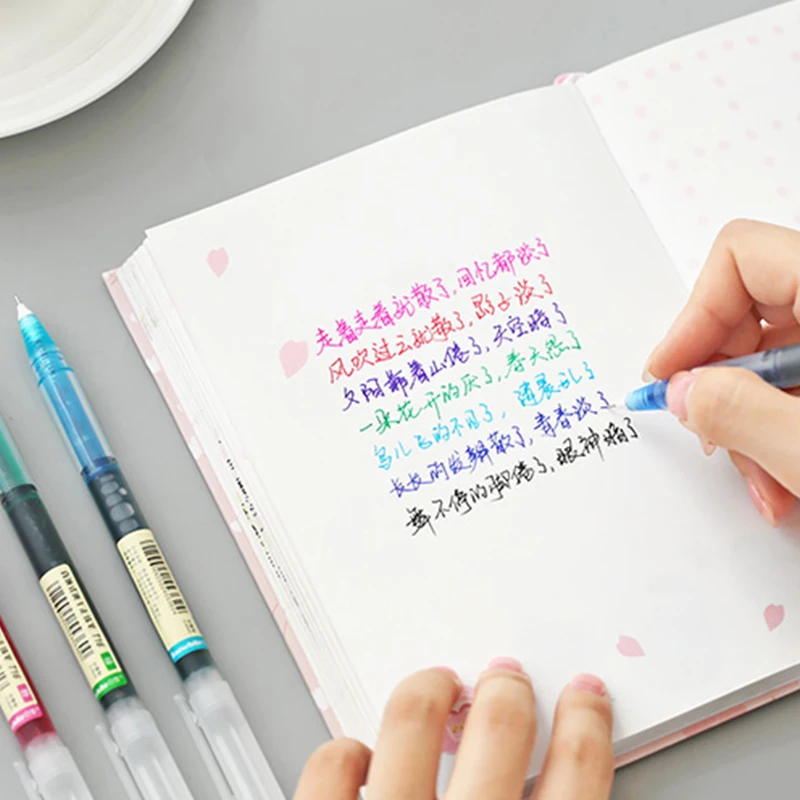 走着走着就散了，回忆都淡了
风吹过云就散了，影子淡了
夕阳靠着山倦了，天空暗了
一朵花开的厌了，春天怨了
鸟儿飞的不见了，
长长的发辫散了，青春淡了
舞不停的脚倦了，眼神暗了